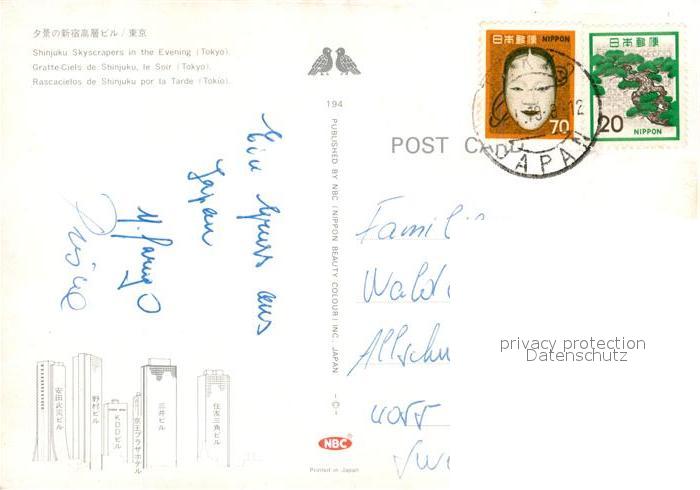 夕景の新宿高層ビル/東京
Shinjuku Skyscrapers in the Evening (Tokyo).
Gratte-Ciels de Shinjuku, le Soir (Tokyo).
Rascacielos de Shinjuku por la Tarde (Tokio).
194
PUBLISHED BY NBC (NIPPON BEAUTY COLOUR) INC. JAPAN
NBC
Printed in Japan
POST CARD
日本郵便 NIPPON
70
日本郵便
20
NIPPON
JAPAN
Ein Gruss aus
Japan
Famili
privacy protection
Datenschutz
安田火災ビル
野村ビル
KDDビル
京王プラザホテル
三井ビル
住友三角ビル